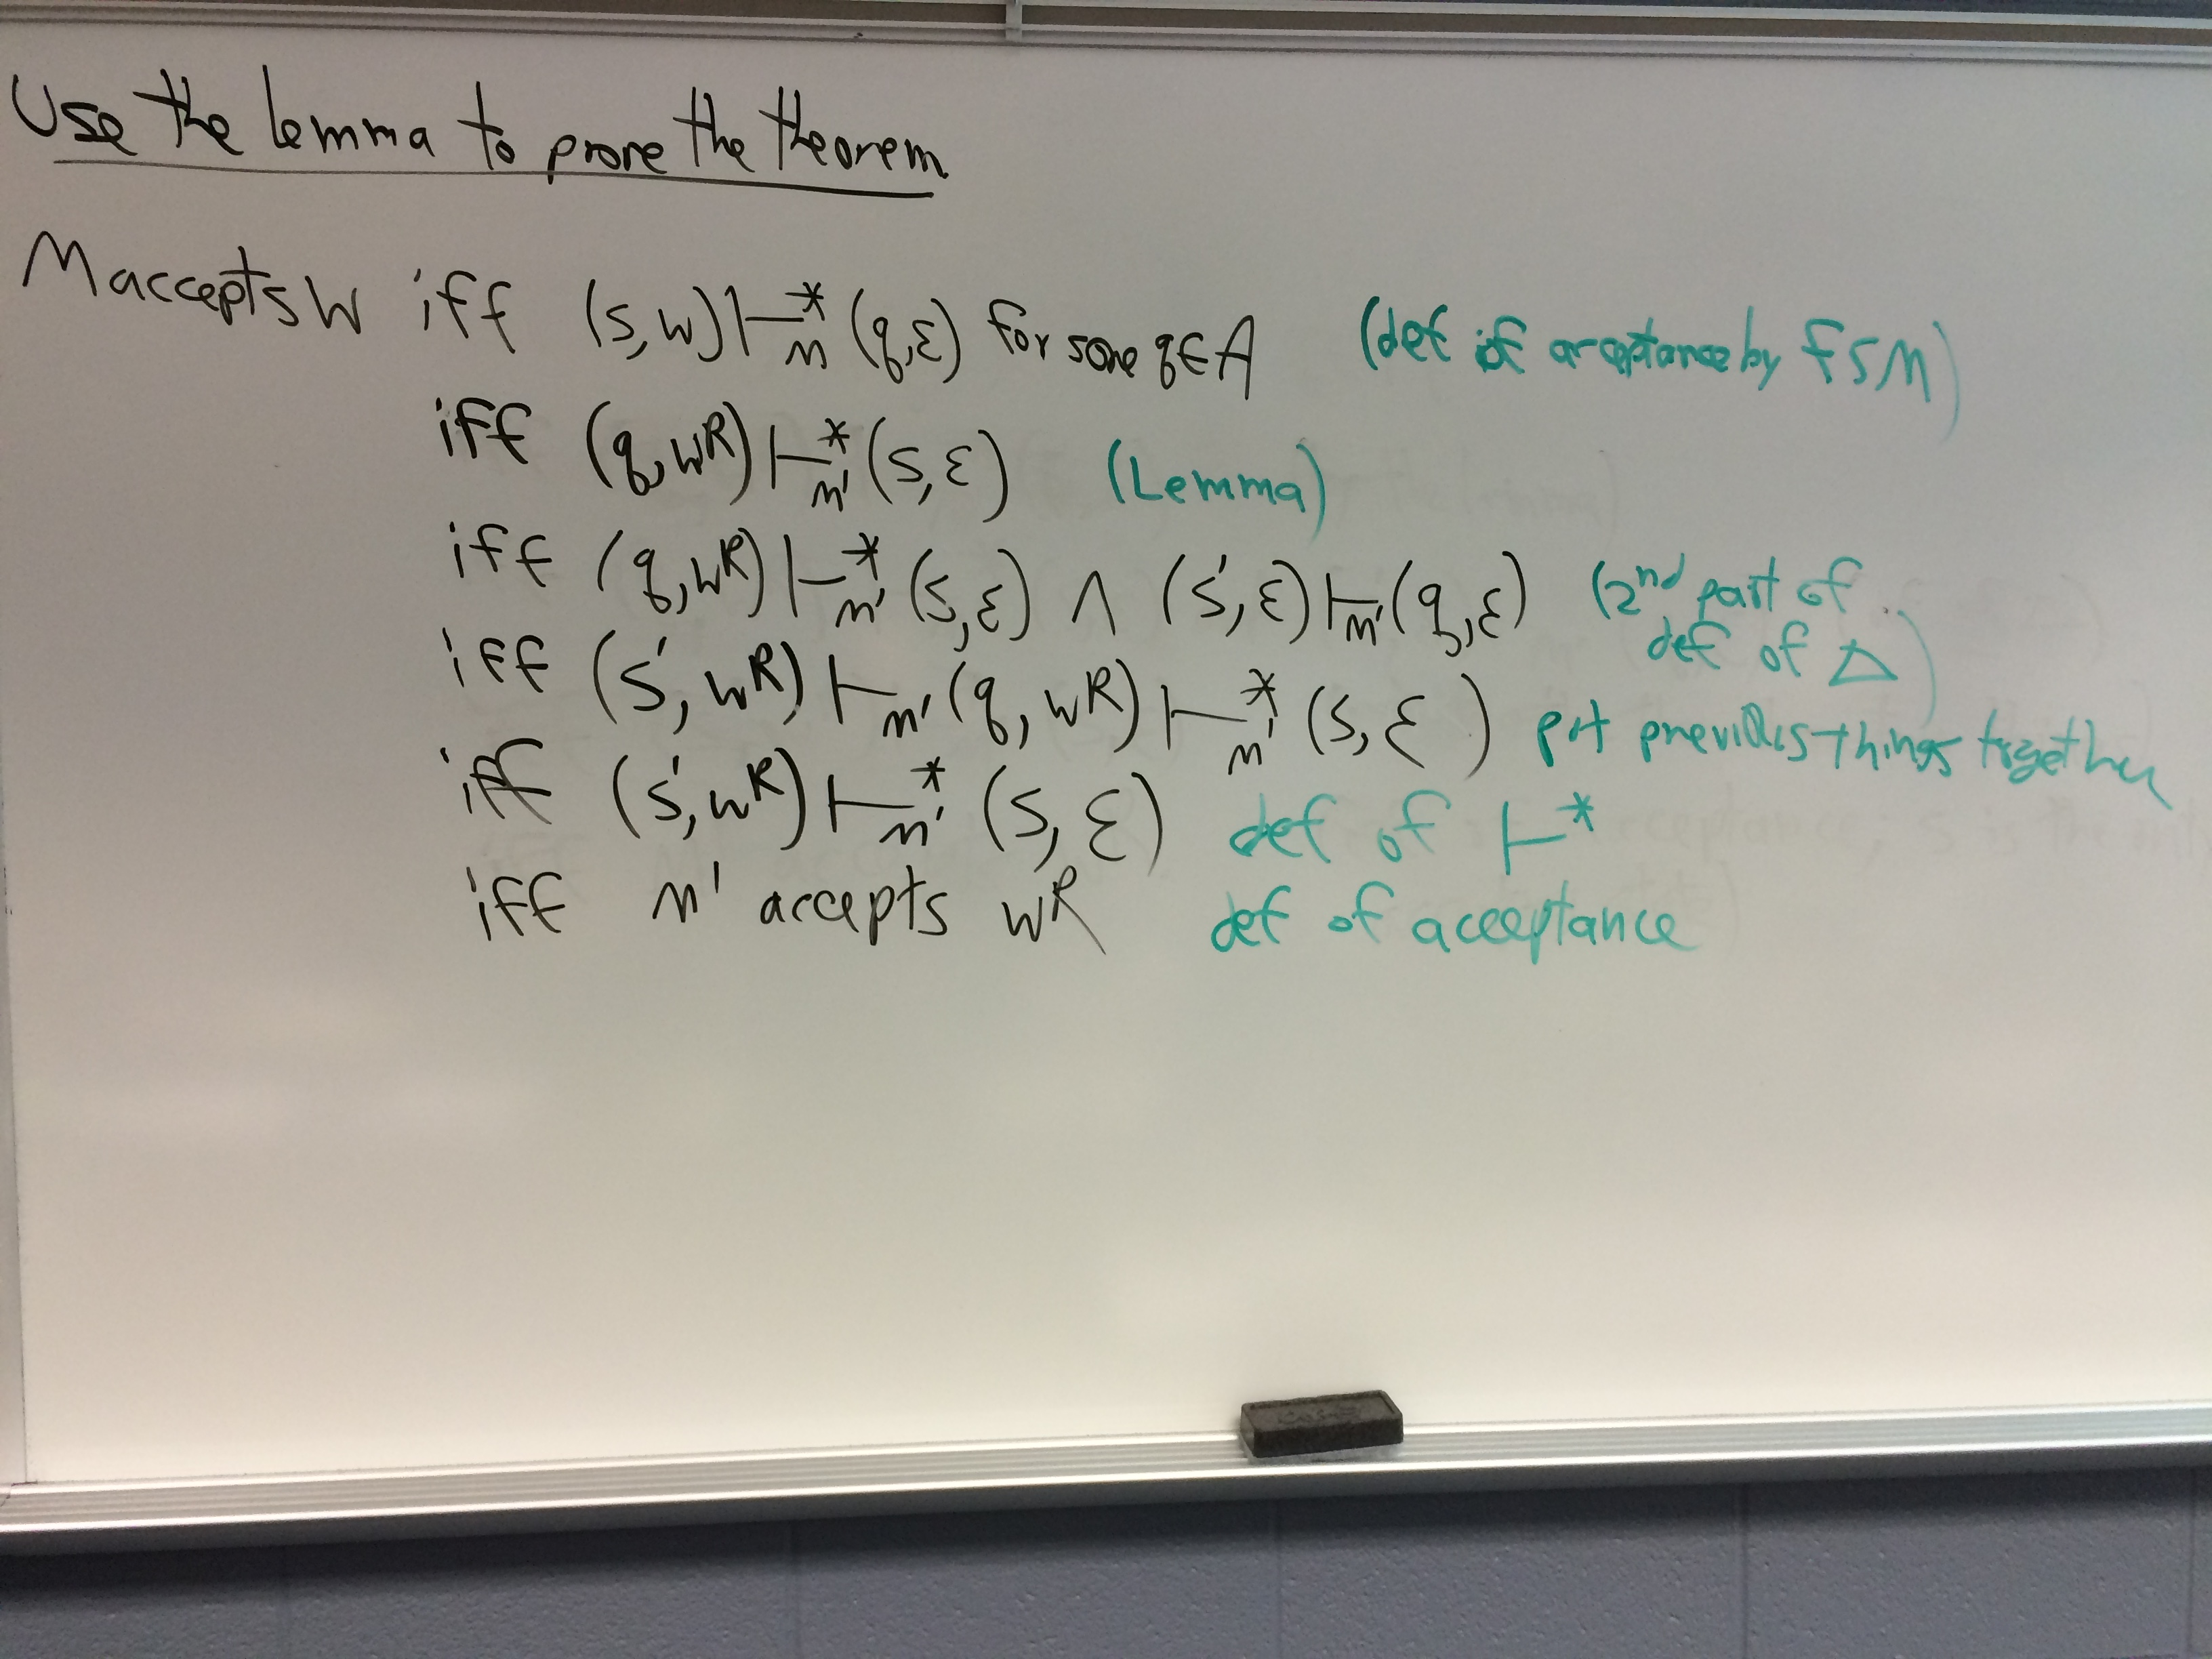 Use the lemma to prove the theorem
M accepts w iff (s,w) ⊢*M (q,ε) for some q∈A (def of acceptance by FSM)
iff (q,wᴿ) ⊢*M' (s,ε) (Lemma)
iff (q,wᴿ) ⊢*M' (s,ε) ∧ (s',ε) ⊢M' (q,ε) (2nd part of
def of Δ)
iff (s',wᴿ) ⊢M' (q,wᴿ) ⊢*M' (s,ε) put previous things together
iff (s',wᴿ) ⊢*M' (s,ε) def of ⊢*
iff M' accepts wᴿ def of acceptance